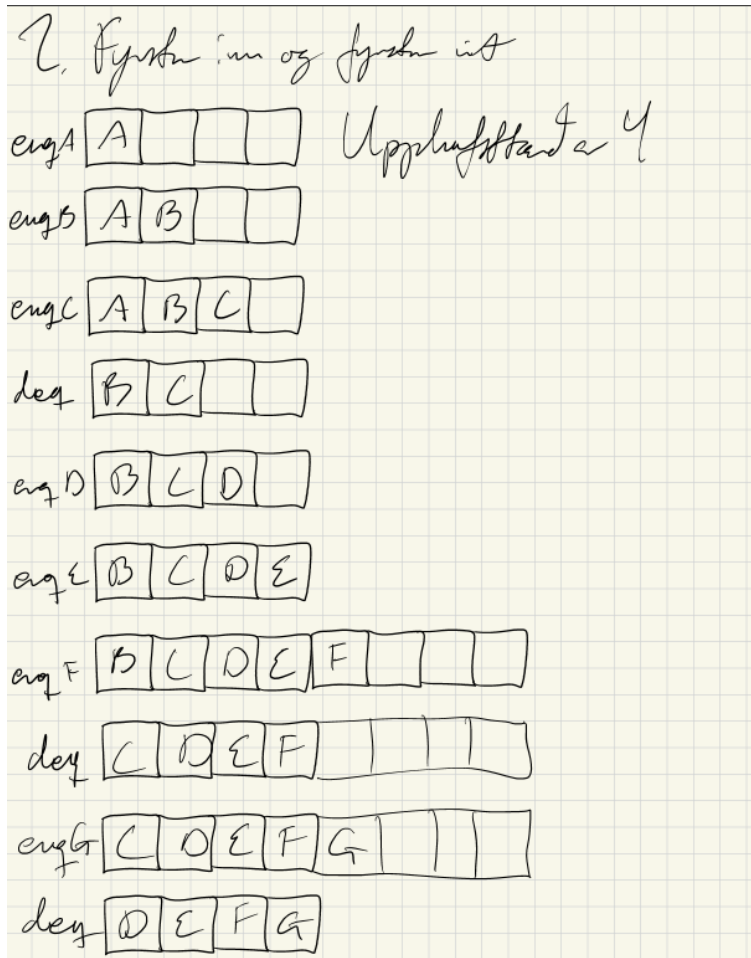 2. Fyrstur inn og fyrstur út
enqA A
Upphafsstærð er 4
enqB A B
enqC A B C
deq B C
enqD B C D
enqE B C D E
enqF B C D E F
deq C D E F
enqG C D E F G
deq D E F G